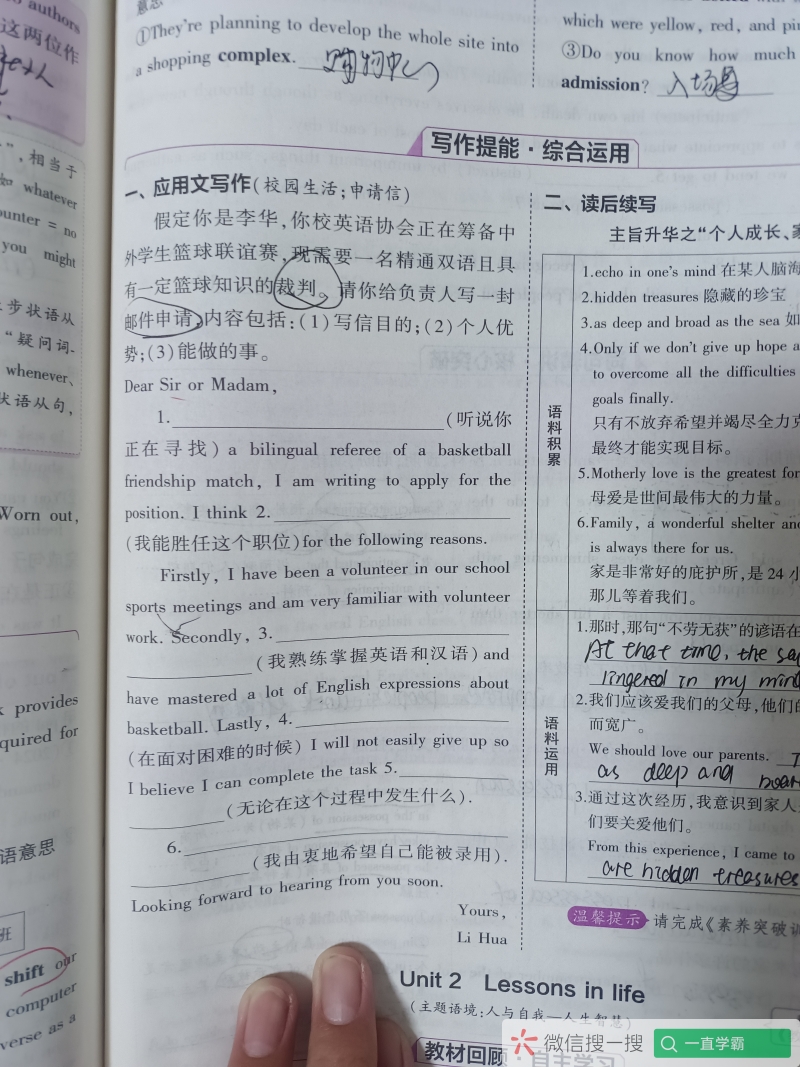 o authors
这两位作
”，相当于
如 whatever
ounter = no
you might
步状语从
“疑问词-
whenever、
状语从句，
Worn out,
k provides
quired for
语意思
班
shift our
computer
verse as a
意思
①They're planning to develop the whole site into
a shopping complex. 购物中心
which were yellow, red, and pin
③Do you know how much
admission? 入场费
写作提能·综合运用
一、应用文写作(校园生活;申请信)
假定你是李华,你校英语协会正在筹备中
外学生篮球联谊赛,现需要一名精通双语且具
有一定篮球知识的裁判。请你给负责人写一封
邮件申请,内容包括:(1)写信目的;(2)个人优
势;(3)能做的事。
Dear Sir or Madam,
1. (听说你
正在寻找) a bilingual referee of a basketball
friendship match, I am writing to apply for the
position. I think 2.
(我能胜任这个职位)for the following reasons.
Firstly, I have been a volunteer in our school
sports meetings and am very familiar with volunteer
work. Secondly, 3.
(我熟练掌握英语和汉语) and
have mastered a lot of English expressions about
basketball. Lastly, 4.
(在面对困难的时候) I will not easily give up so
I believe I can complete the task 5.
(无论在这个过程中发生什么).
6.
(我由衷地希望自己能被录用).
Looking forward to hearing from you soon.
Yours,
Li Hua
二、读后续写
主旨升华之“个人成长、家
语料积累
1.echo in one's mind 在某人脑海
2.hidden treasures 隐藏的珍宝
3.as deep and broad as the sea 如
4.Only if we don't give up hope a
to overcome all the difficulties
goals finally.
只有不放弃希望并竭尽全力克
最终才能实现目标。
5.Motherly love is the greatest for
母爱是世间最伟大的力量。
6.Family, a wonderful shelter and
is always there for us.
家是非常好的庇护所,是 24 小
那儿等着我们。
语料运用
1.那时,那句“不劳无获”的谚语在
At that time, the sa
lingered in my mind
2.我们应该爱我们的父母,他们的
而宽广。
We should love our parents.
as deep and
3.通过这次经历,我意识到家人
们要关爱他们。
From this experience, I came to
are hidden treasures
温馨提示 请完成《素养突破训
Unit 2 Lessons in life
(主题语境:人与自我—人生智慧)
教材回顾·自主学习
微信搜一搜
一直学霸